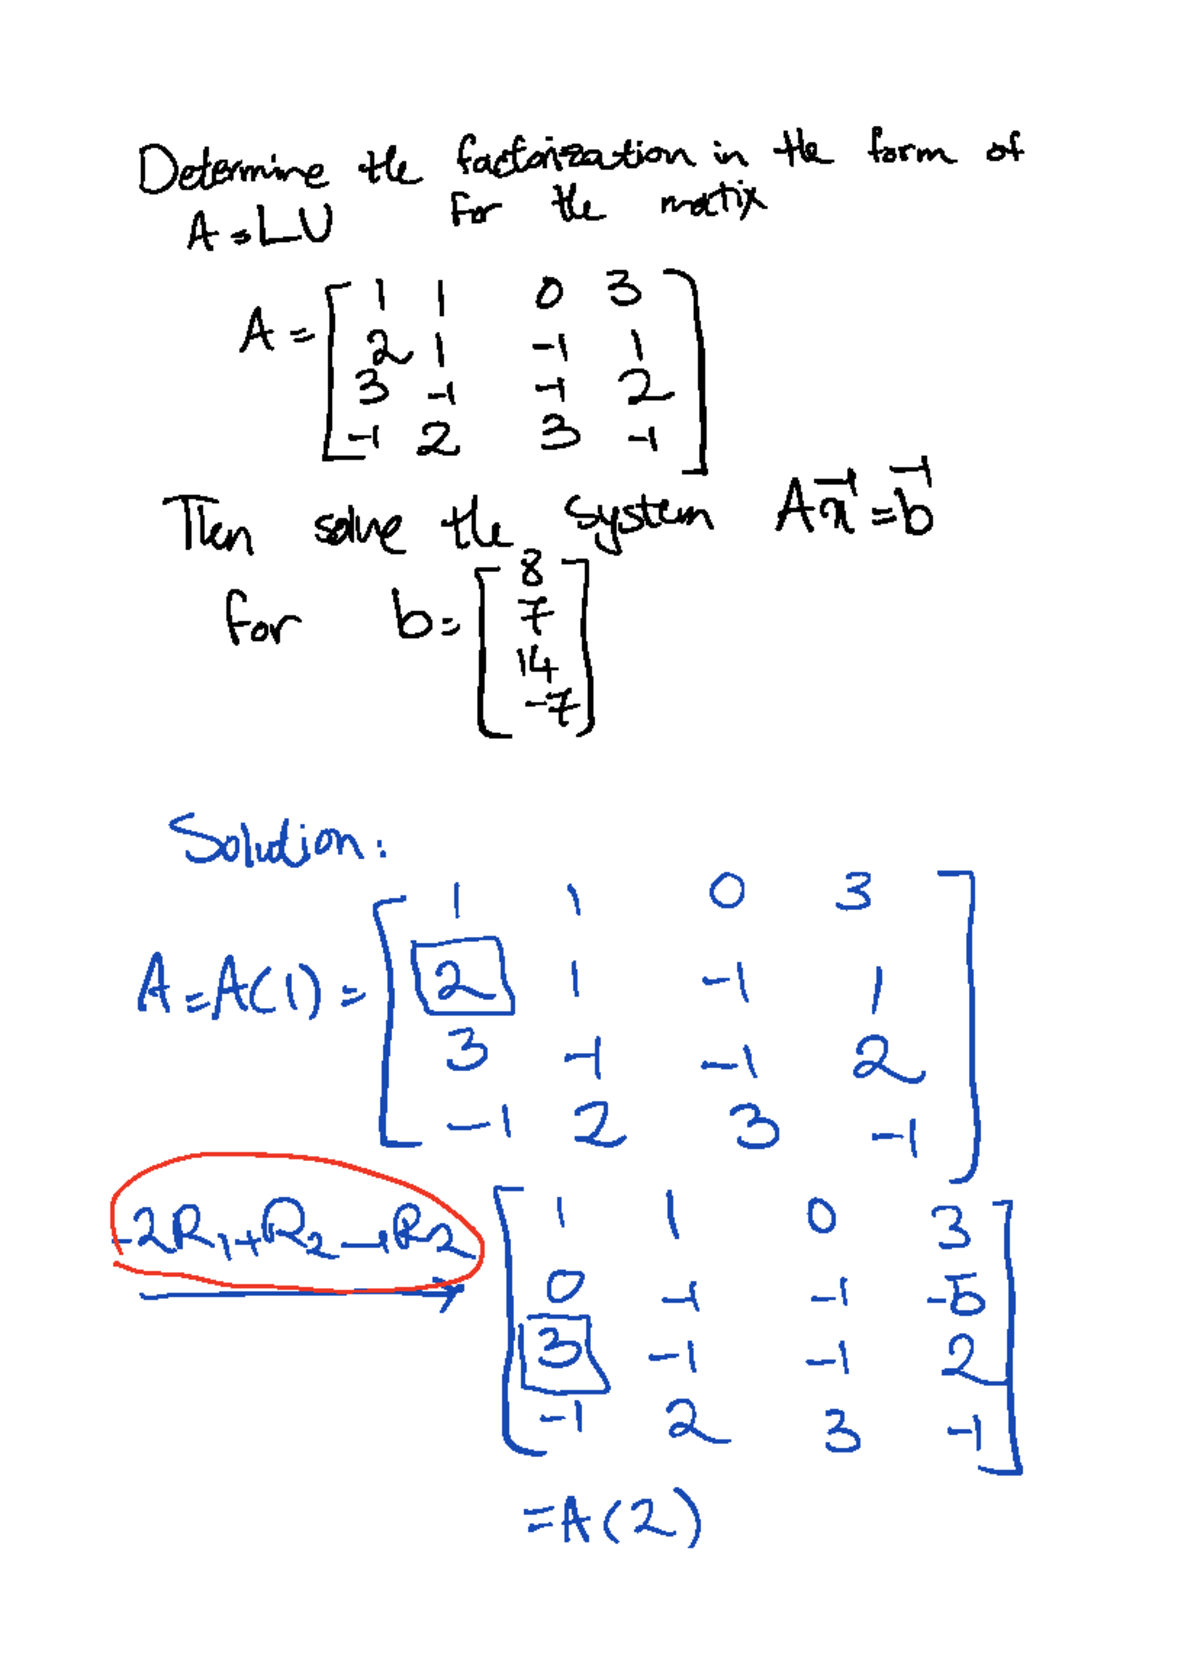 Determine the factorization in the form of
A = LU for the matix
A = [ 1 1 0 3
2 1 -1 1
3 -1 -1 2
-1 2 3 -1 ]
Then solve the system Ax = b
for b = [ 8
7
14
-7 ]
Solution:
A = A(1) = [ 1 1 0 3
2 1 -1 1
3 -1 -1 2
-1 2 3 -1 ]
-2R1 + R2 → R2 [ 1 1 0 3
0 -1 -1 -5
3 -1 -1 2
-1 2 3 -1 ]
= A(2)